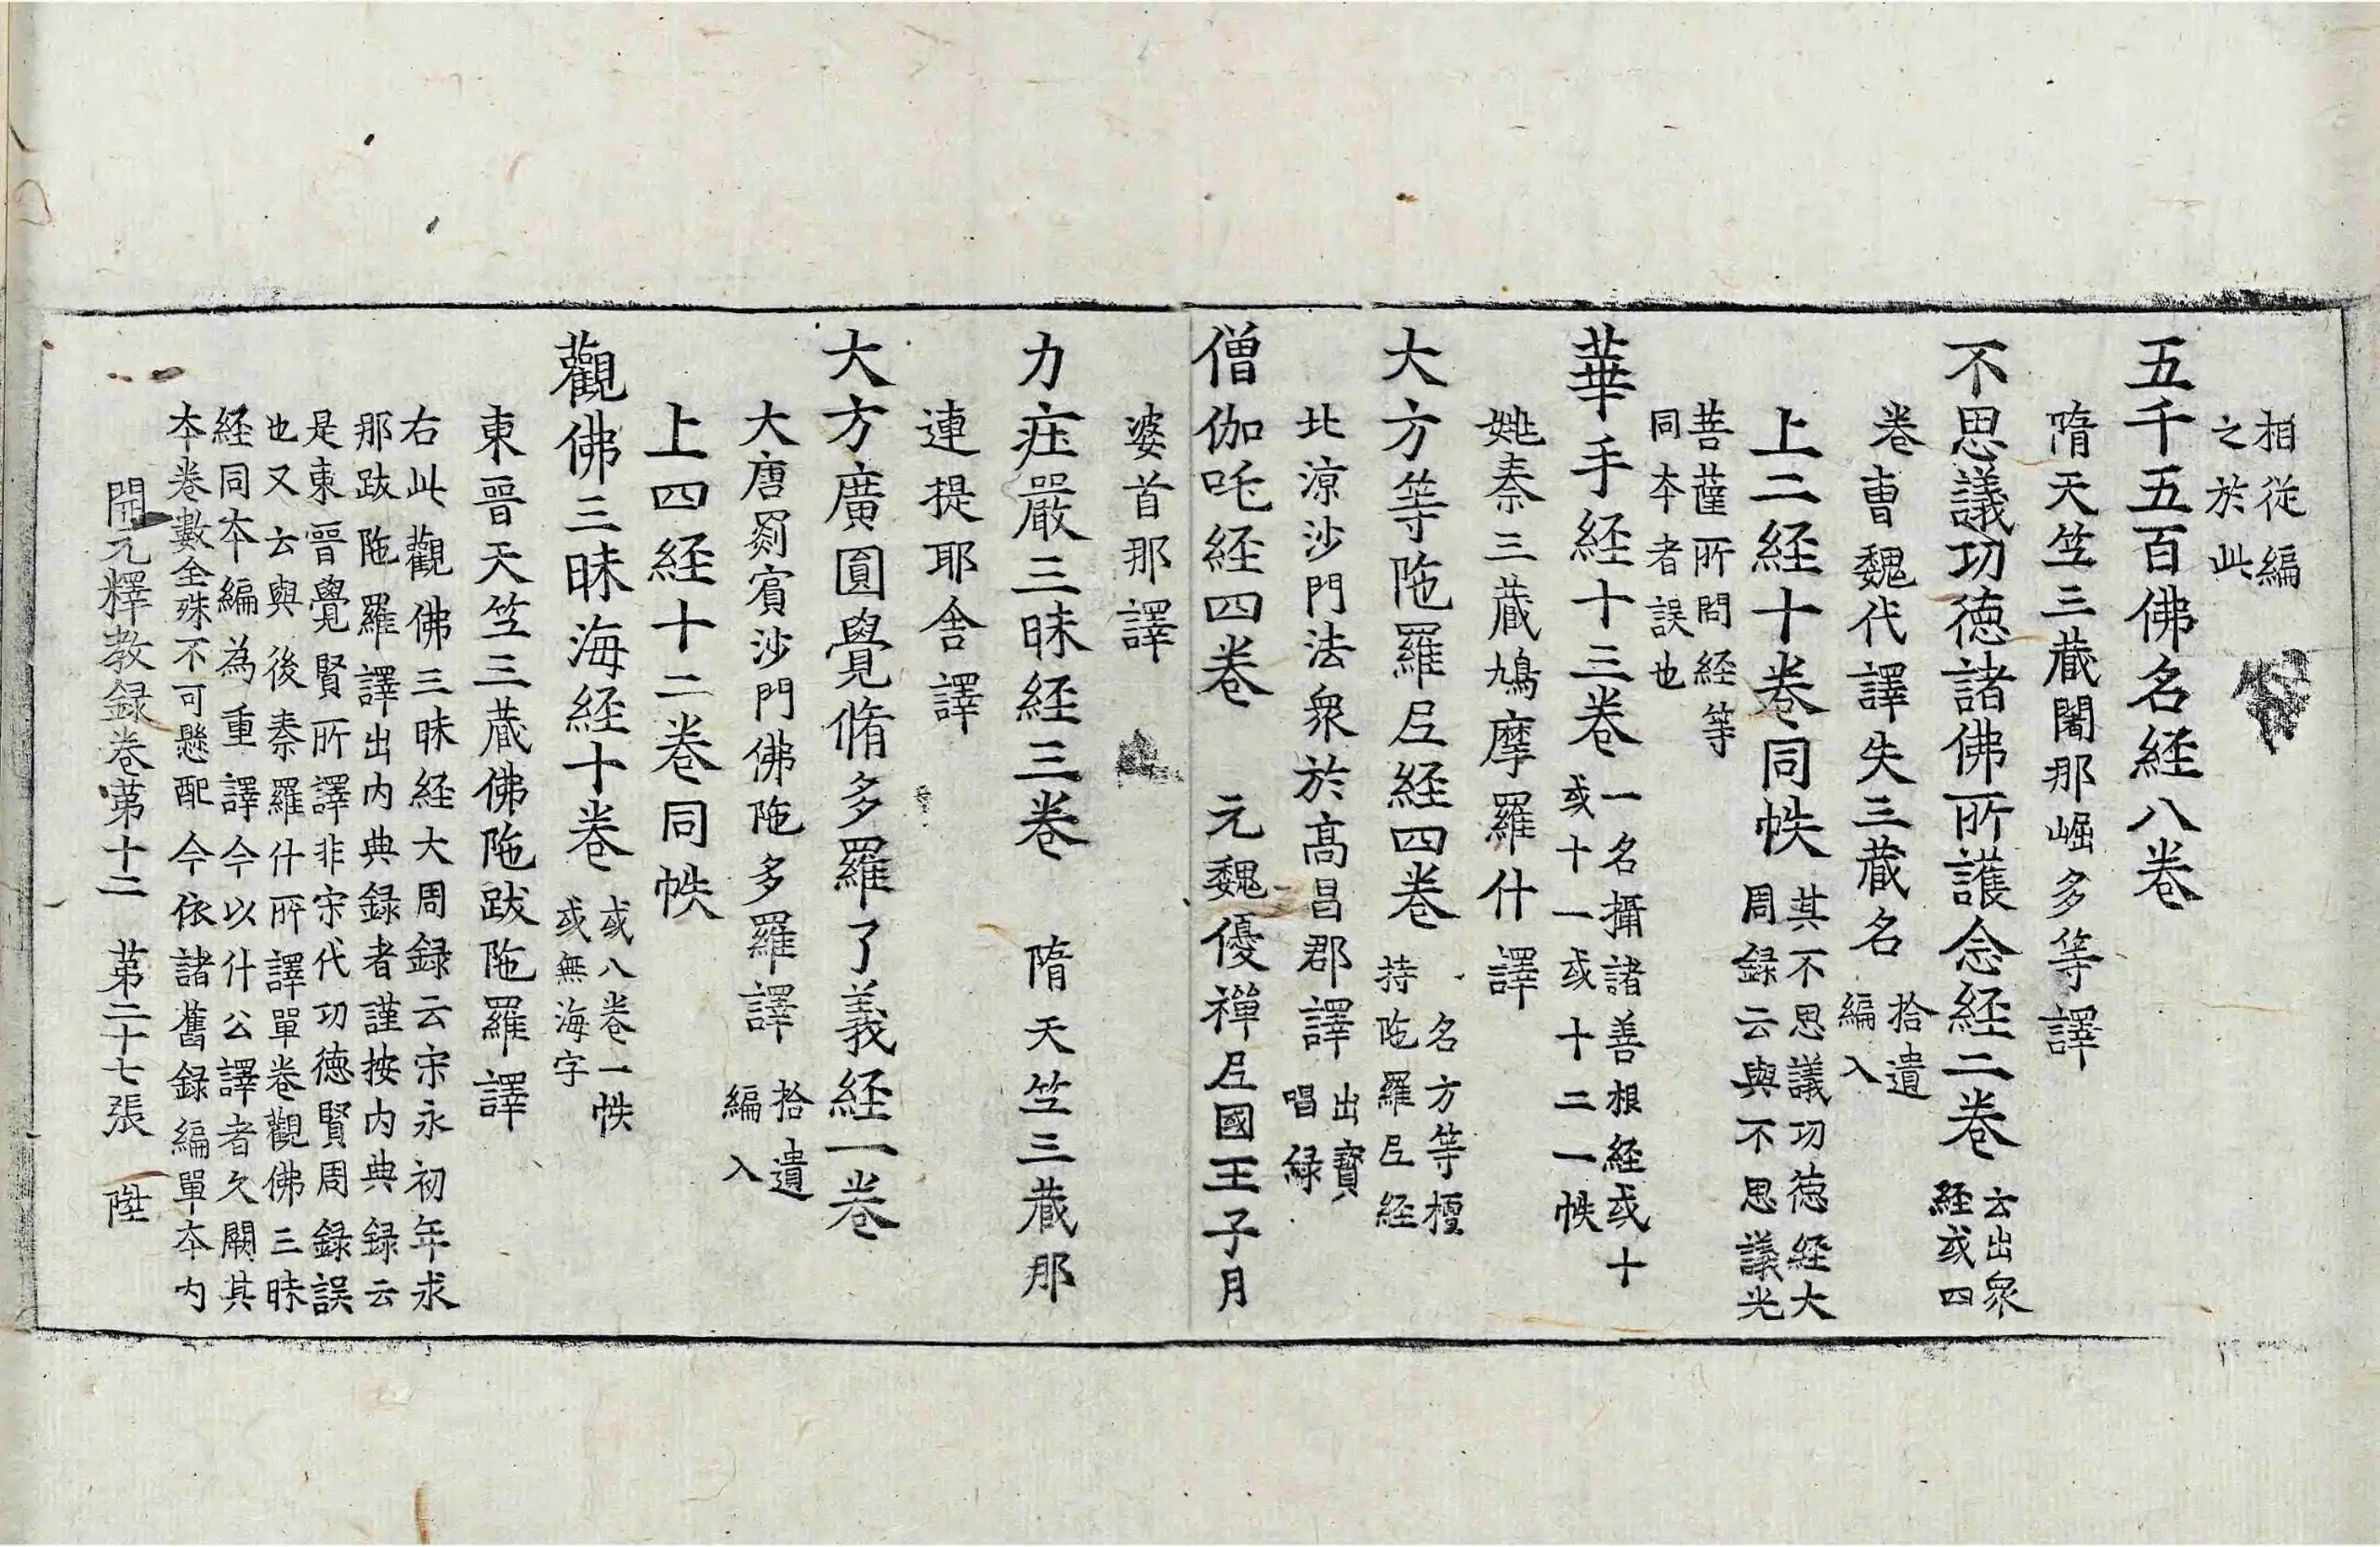 相從編
之於此
五千五百佛名経八卷
隋天竺三蔵闍那崛多等譯
不思議功徳諸佛所護念経二卷
云出衆
経或四
卷曺魏代譯失三蔵名
拾遺
編入
上二経十卷同帙
其不思議功徳経大
周録云與不思議光
菩薩所問経等
同夲者誤也
華手経十三卷
一名攝諸善根経或十
或十一或十二一帙
姚秦三蔵鳩摩羅什譯
大方等陁羅尼経四卷
名方等檀
持陁羅尼経
北涼沙門法衆於髙昌郡譯
出寶
唱録
僧伽吒経四卷 元魏優禪尼國王子月
婆首那譯
力庄嚴三昧経三卷 隋天竺三蔵那
連提耶舎譯
大方廣圓覺脩多羅了義経一卷
大唐罽賓沙門佛陁多羅譯
拾遺
編入
上四経十二卷同帙
觀佛三昧海経十卷
或八卷一帙
或無海字
東晉天竺三蔵佛陁跋陁羅譯
右此觀佛三昧経大周録云宋永初年求
那跋陁羅譯出内典録者謹按内典録云
是東晉覺賢所譯非宋代功徳賢周録誤
也又云與後秦羅什所譯單卷觀佛三昧
経同夲編為重譯今以什公譯者久闕其
夲卷數全殊不可懸配今依諸舊録編單夲内
開元釋教録卷第十二 第二十七張 陞